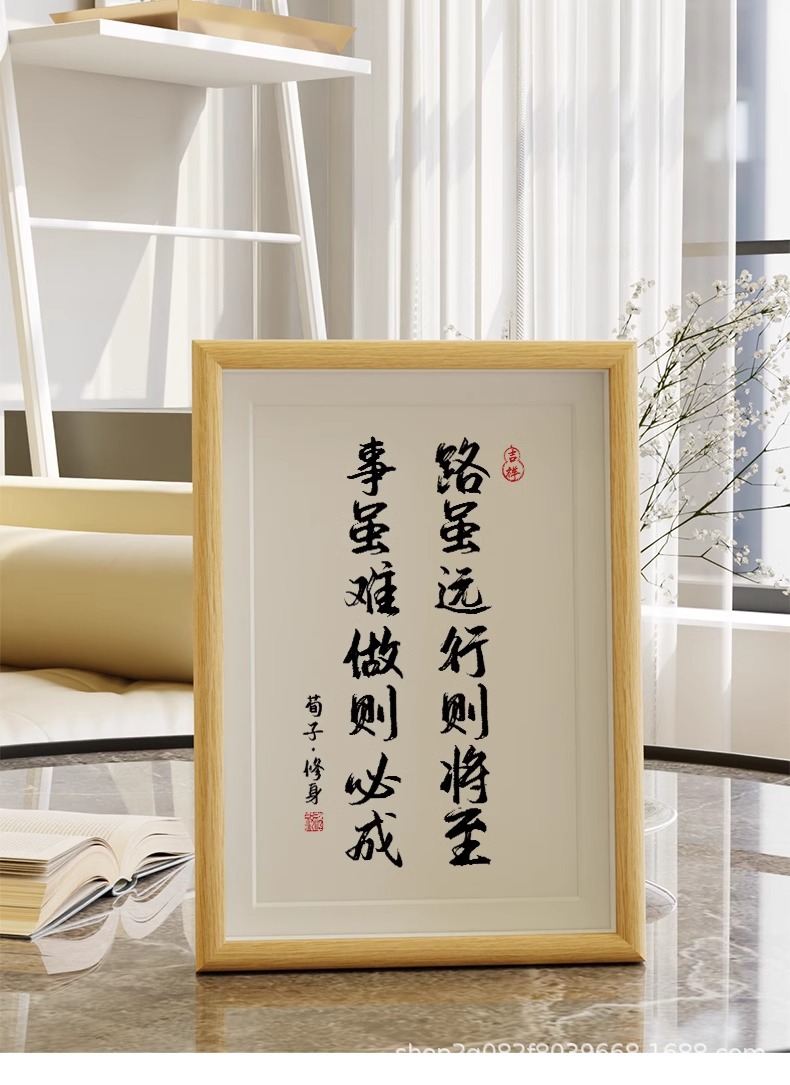 吉祥
路虽远行则将至
事虽难做则必成
荀子·修身
shop2g082f8039668.1688.com